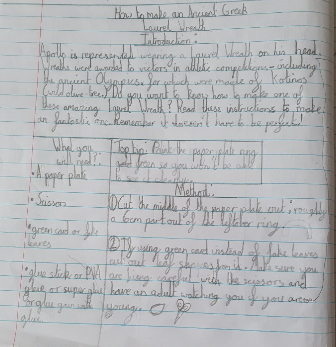 How to make an Ancient Greek
Laurel Wreath
Introduction.
Apollo is represented wearing a Laurel Wreath on his head.
Wreaths were awarded to victors in athletic competitions - including
the ancient Olympics for which were made of Kotinos
(wild olive tree) Do you want to know how to make one of
these amazing laurel wreath? Read these instructions to make
an fantastic one. Remember it doesn't have to be perfect!
What you
will need:
• A paper plate
• Scissors
• green card or fake
leaves
• glue stick or PVA
glue or superglue
or glue gun with
glue
Top tip: Paint the paper plate ring
green so you won't be able
to see it
Method:
1) Cut the middle of the paper plate out; roughly
a 6cm part out of the ring.
2) If using green card instead of fake leaves
cut out leaf Make sure you
are being careful with the scissors and
have an adult watching you if you are
young.